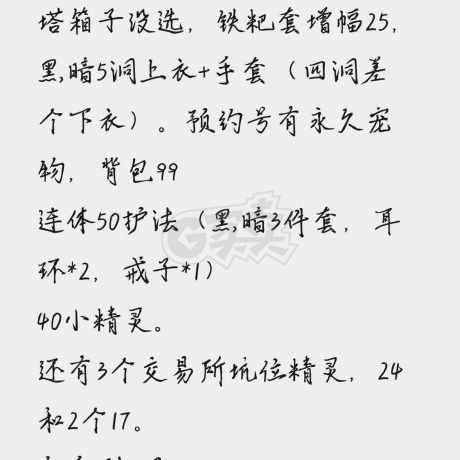 塔箱子没选，铁粑套增幅25，
黑,暗5洞上衣+手套（四洞差
个下衣）。预约号有永久宠
物，背包99
连体50护法（黑,暗3件套，耳
环*2，戒子*1）
40小精灵。
还有3个交易所坑位精灵，24
和2个17。